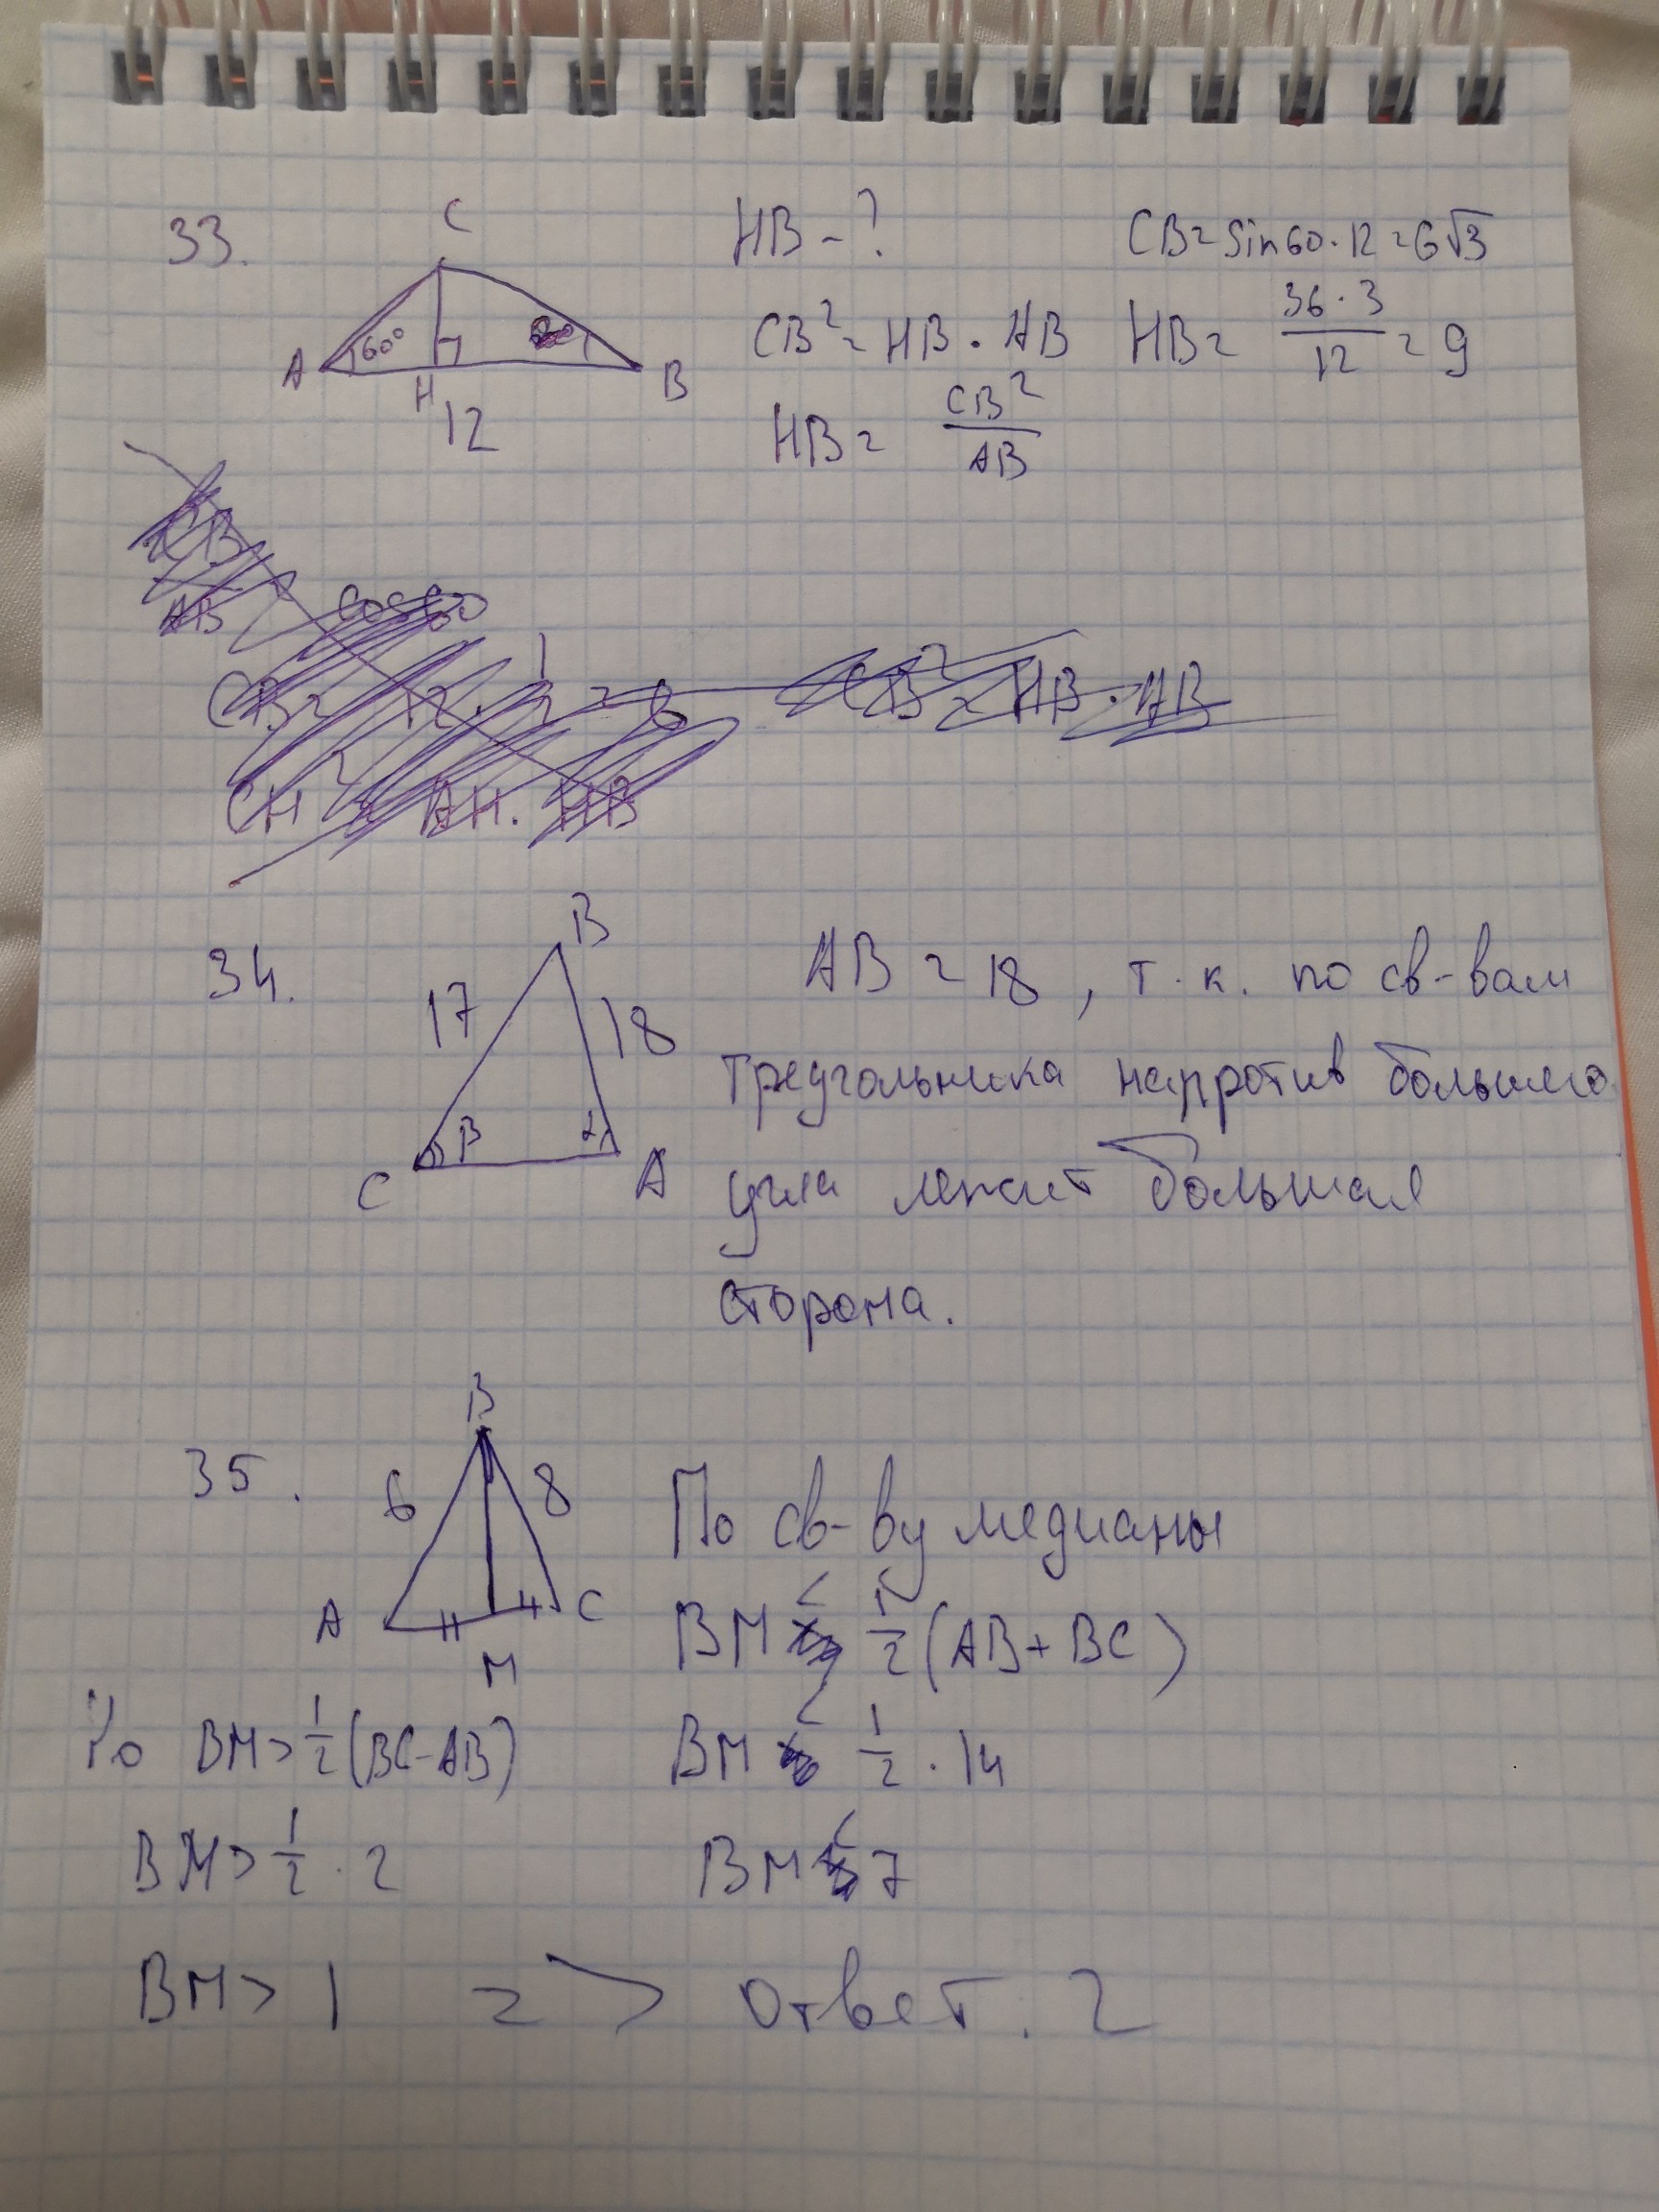 33.
C
A
60°
H
B
12
HB - ?
CB² = HB · AB
HB = CB²/AB
CB = sin60 · 12 = 6√3
HB = 36 · 3/12 = 9
CB
AB
cos60
CB = 12 · 1/2 = 6
CB² = HB · AB
CH² = AH · HB
34.
B
17
18
β
α
C
A
AB = 18, т.к. по св-вам
треугольника напротив большего
угла лежит большая
сторона.
35.
B
6
8
A
C
M
По св-ву медианы
BM < 1/2 (AB + BC)
BM < 1/2 · 14
BM < 7
Но BM > 1/2 (BC - AB)
BM > 1/2 · 2
BM > 1 => Ответ. 2